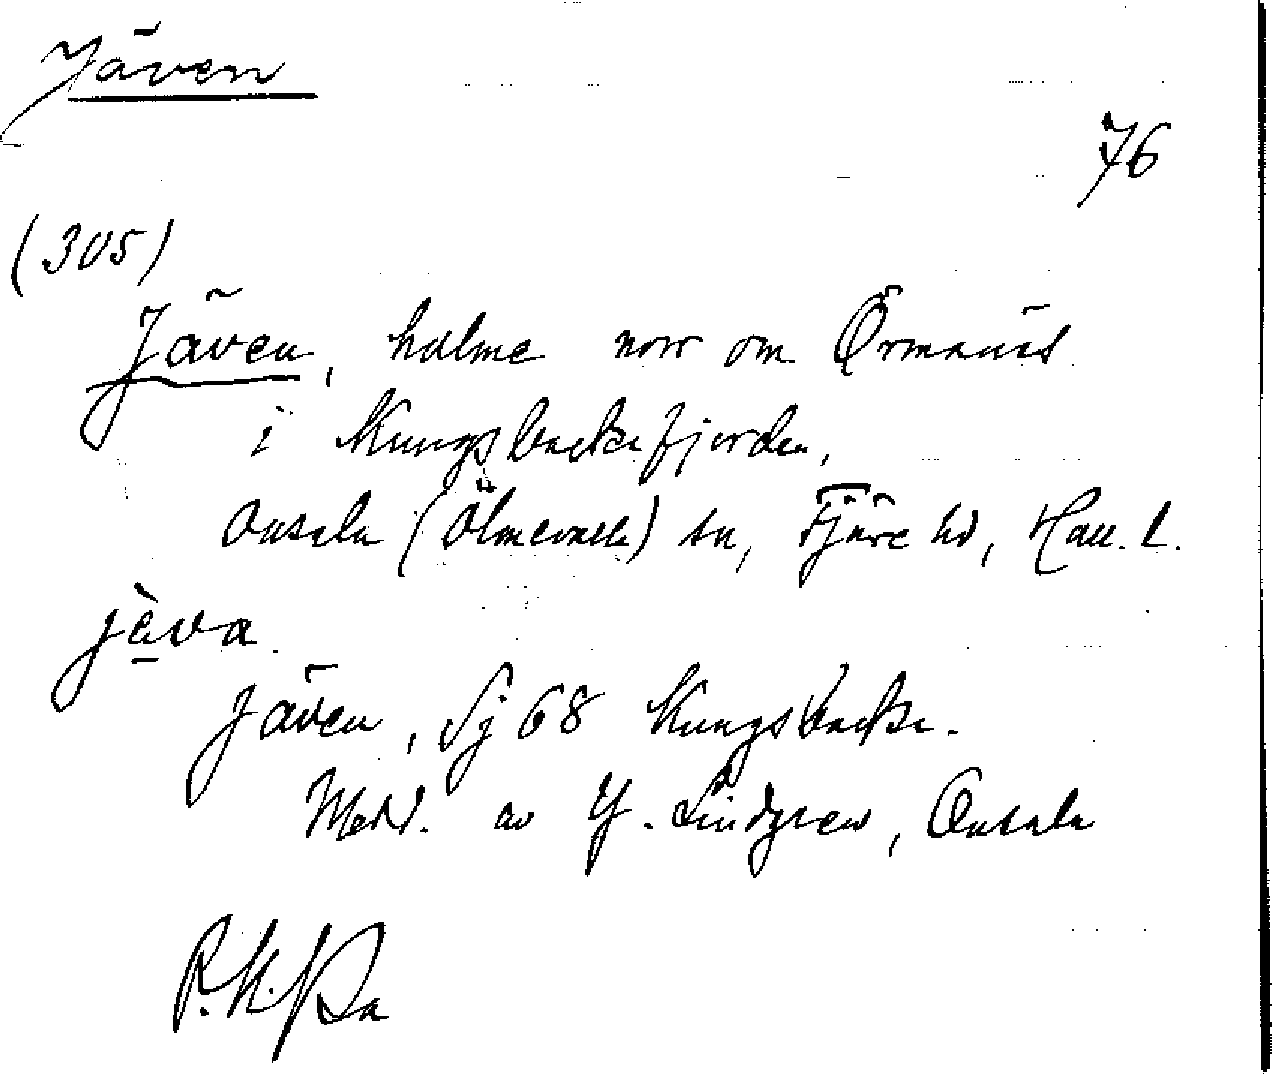 Jäven
76
(305)
Jäven, holme norr om Örmanäs
i Kungsbackafjorden,
Onsala (Ölmevalla) sn, Fjäre hd, Hall. l.
jä̀va
Jäven, Sj 68 Kungsbacka.
Medd. av Y. Lindgren, Onsala